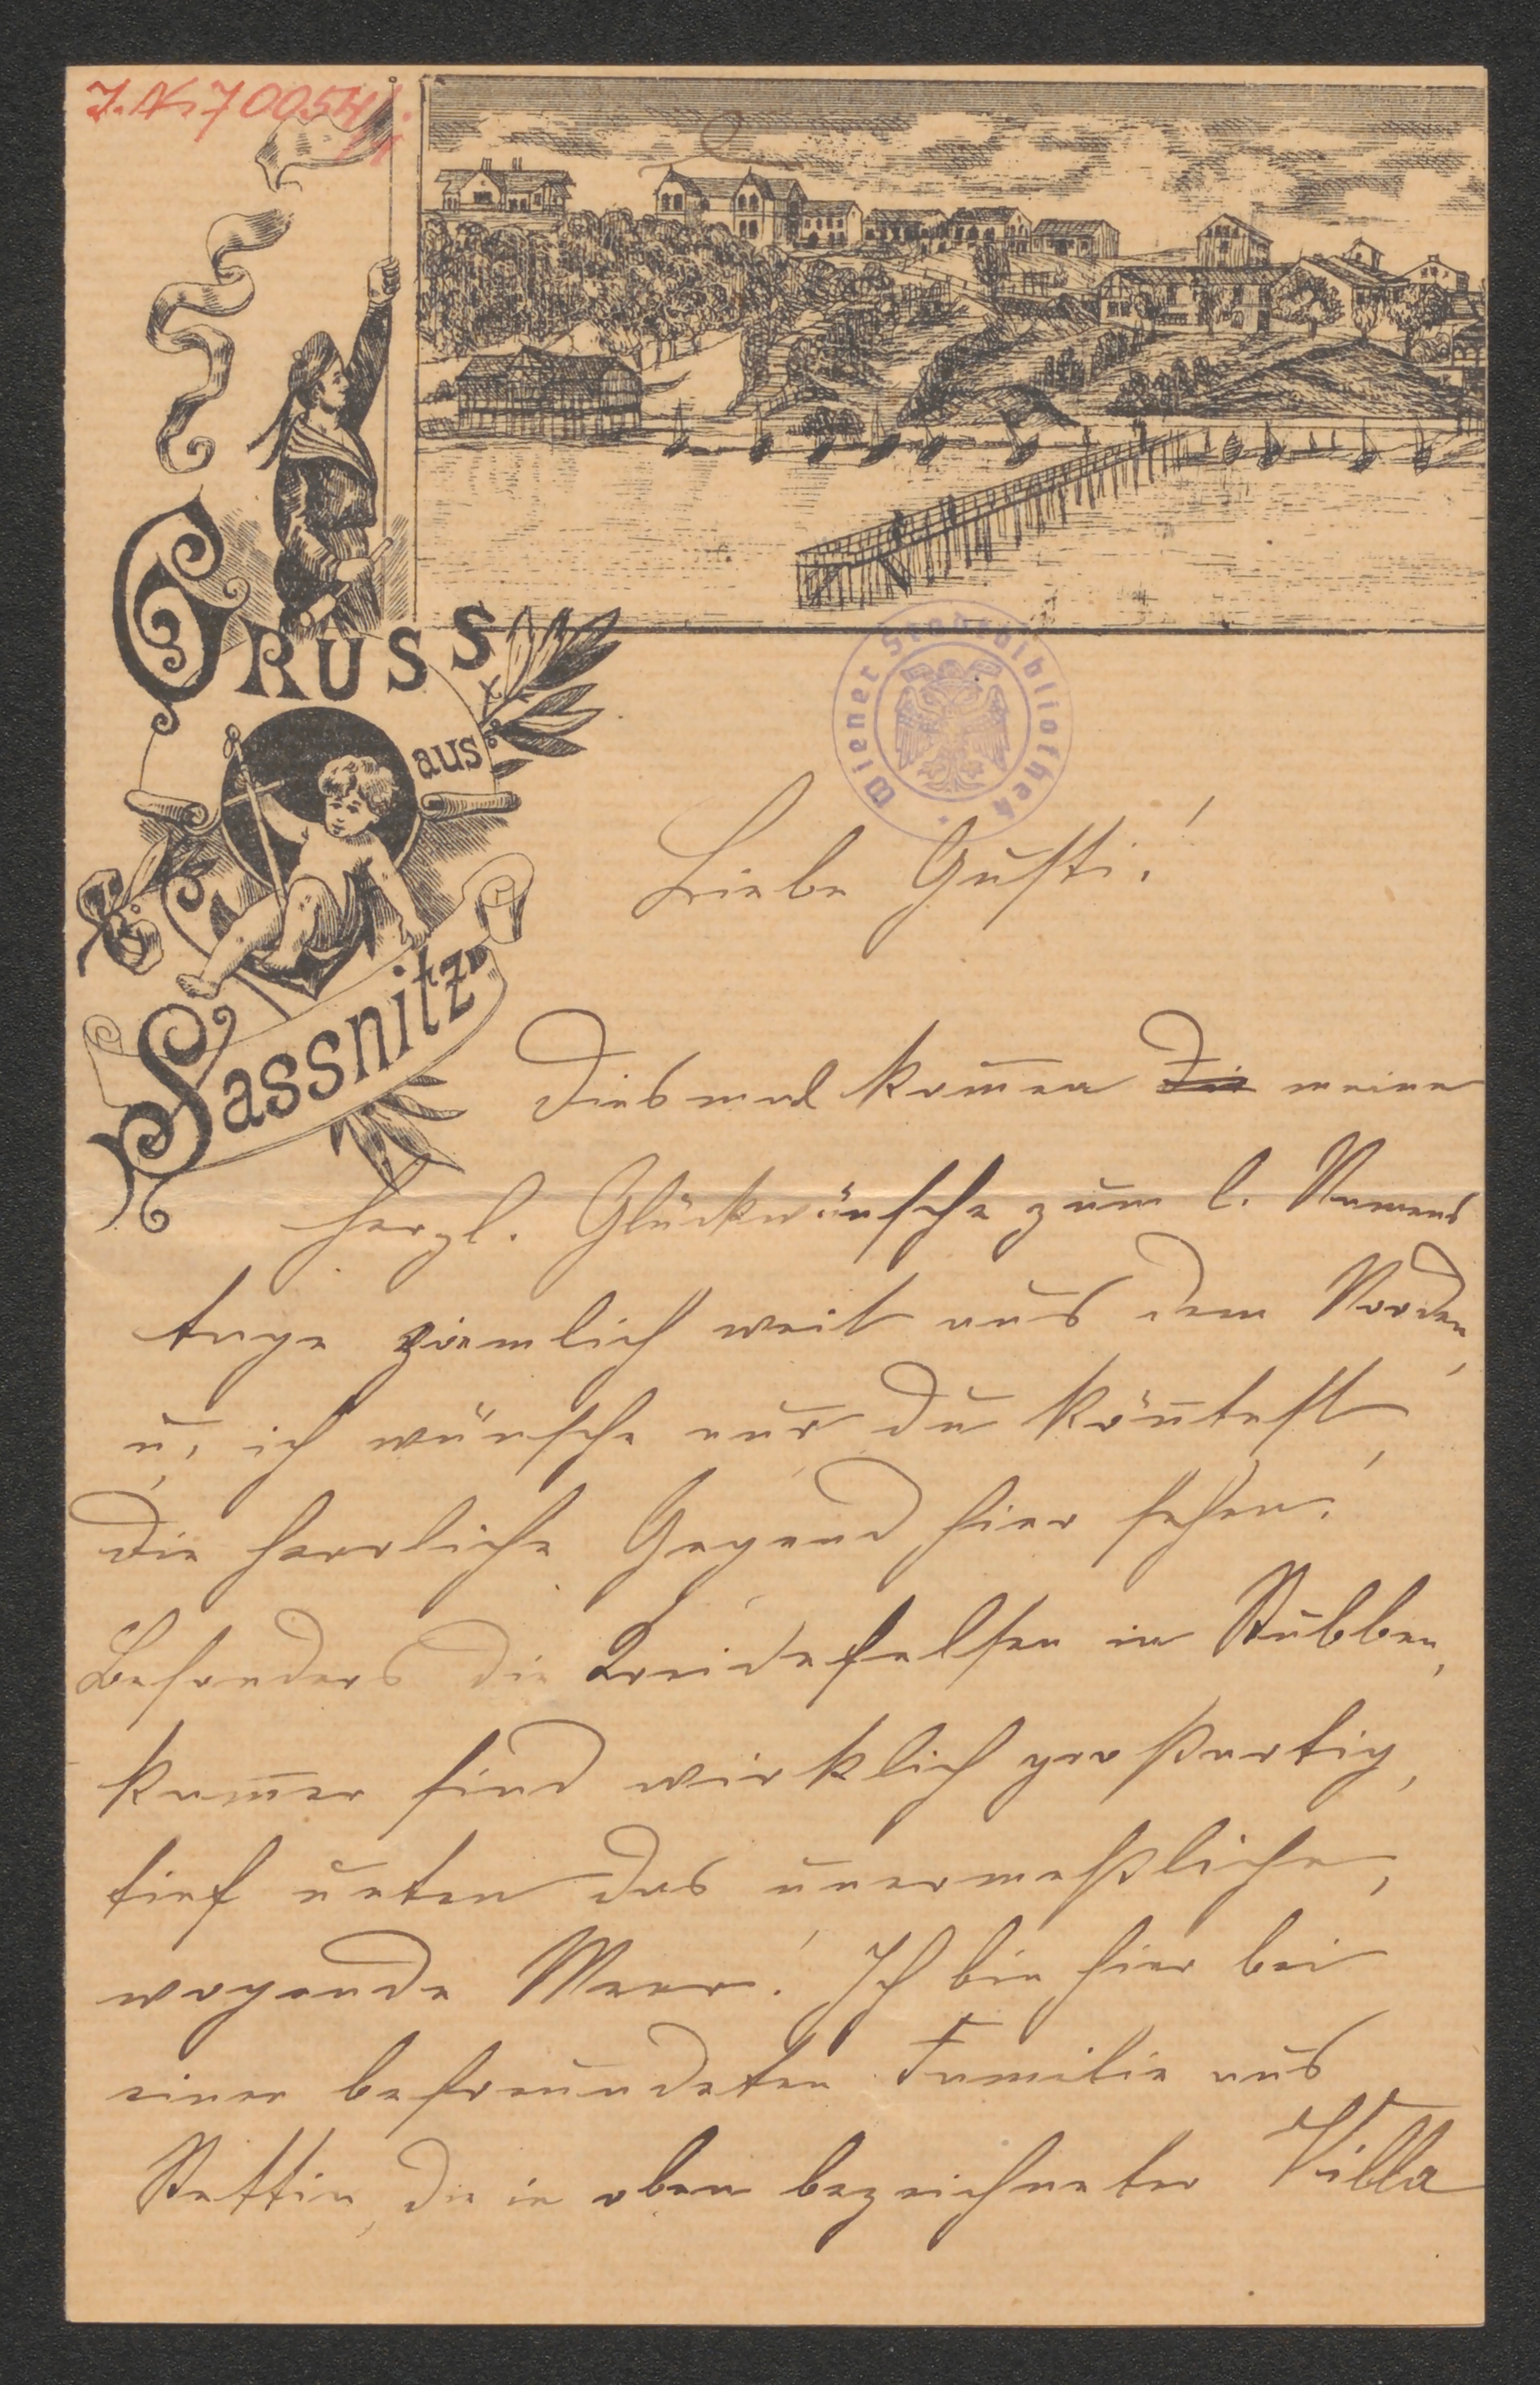 J.N. 70054
GRUSS
aus
Sassnitz
Wiener Stadtbibliothek
Liebe Gusti!
Diesmal kom̅en Di meine
herzl. Glückwünsche zum l. Namens
tage ziemlich weit aus dem Norden,
u, ich wünsche nur, du kön̅test,
die herrliche Gegend hier sehen!
Besonders die Kreidefelsen in Stubben,
kam̅er sind wirklich großartig,
tief unten das unermeßliche,
wogende Meer! Ich bin hier bei
einer befreundeten Familie aus
Stettin, die in oben bezeichneter Villa